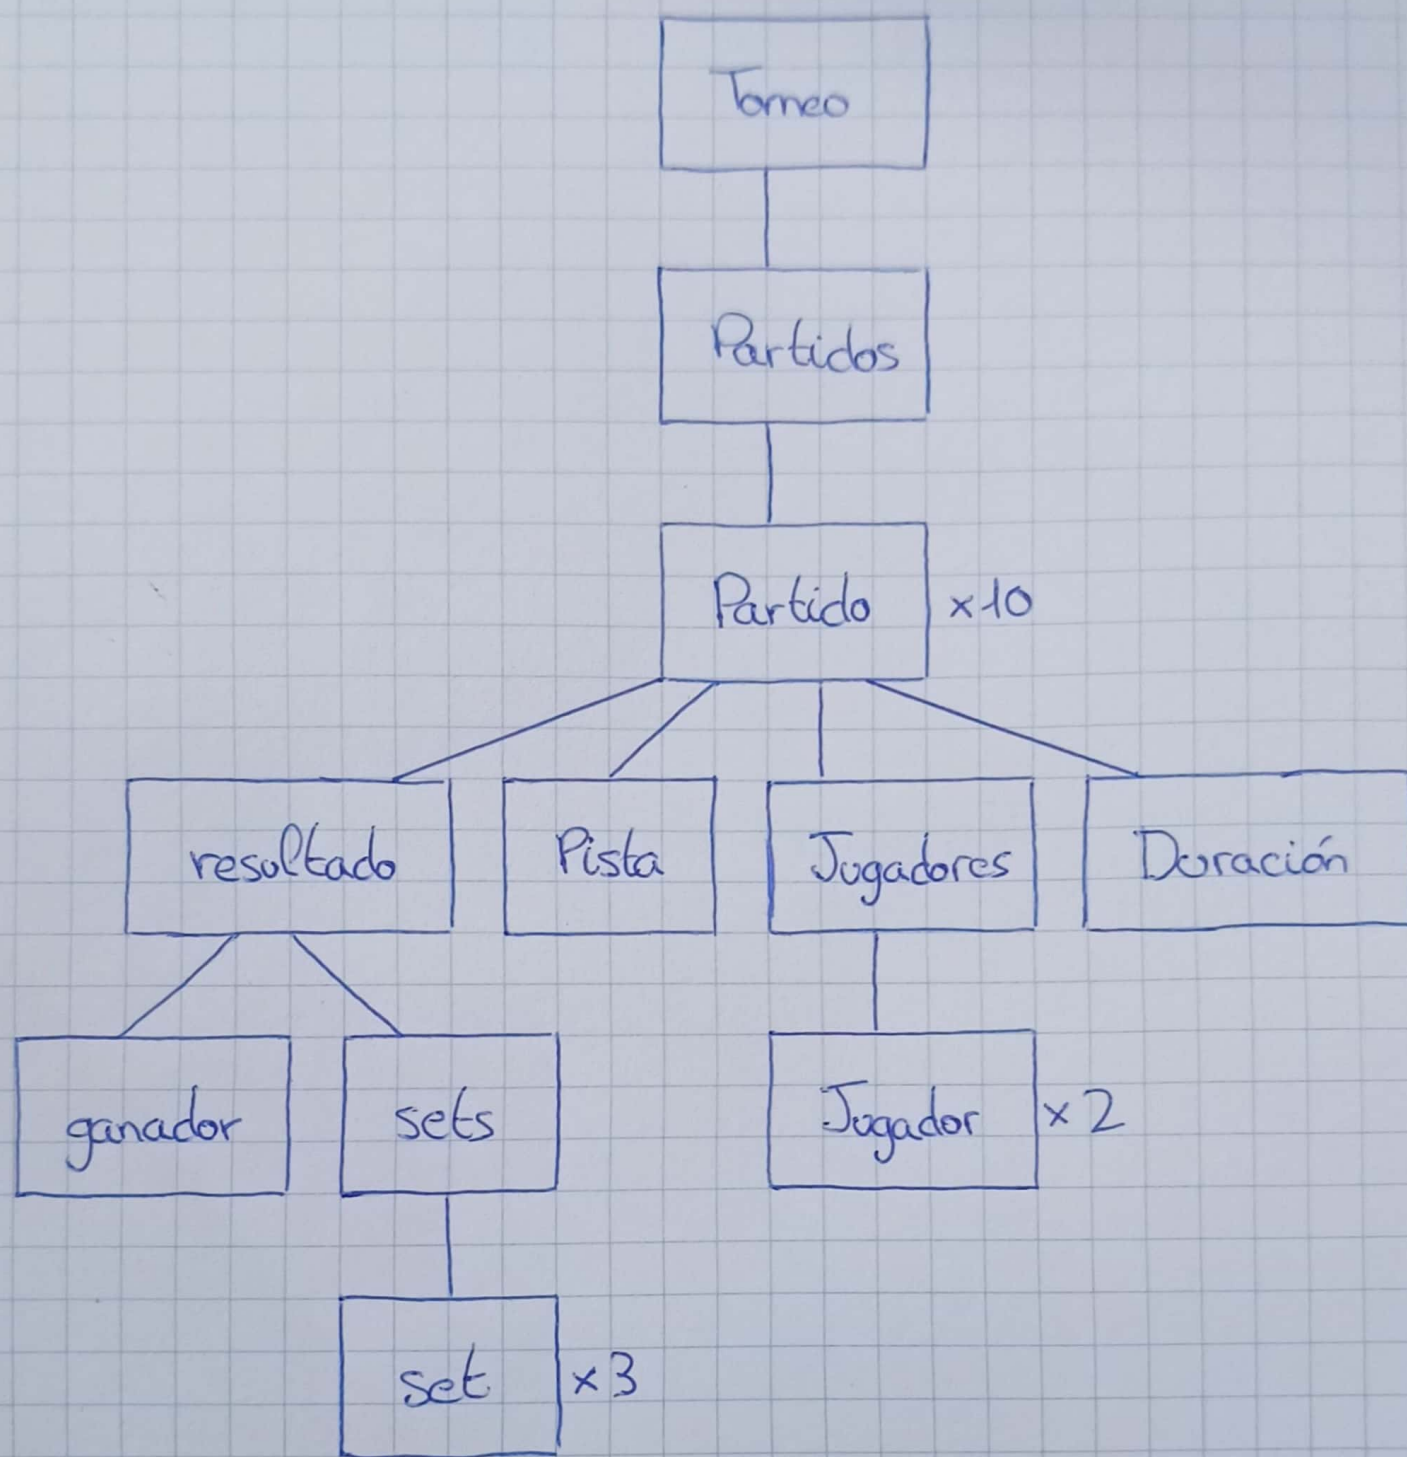 Torneo
Partidos
Partido x10
resultado Pista Jugadores Duración
ganador sets Jugador x2
set x3